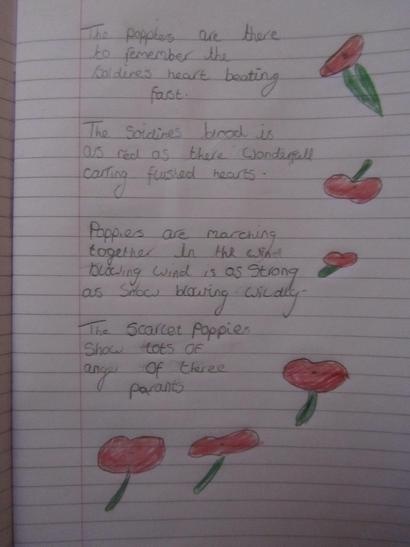 The poppies are there
to remember the
Soldires heart beating
fast.
The Soldires brood is
as red as there wonderfull
carring flushed hearts.
Poppies are marching
together In the wind
blowing wind is as Strong
as Snow blowing wildly.
The Scarlet Poppies
Show lots of
anger of there
parants